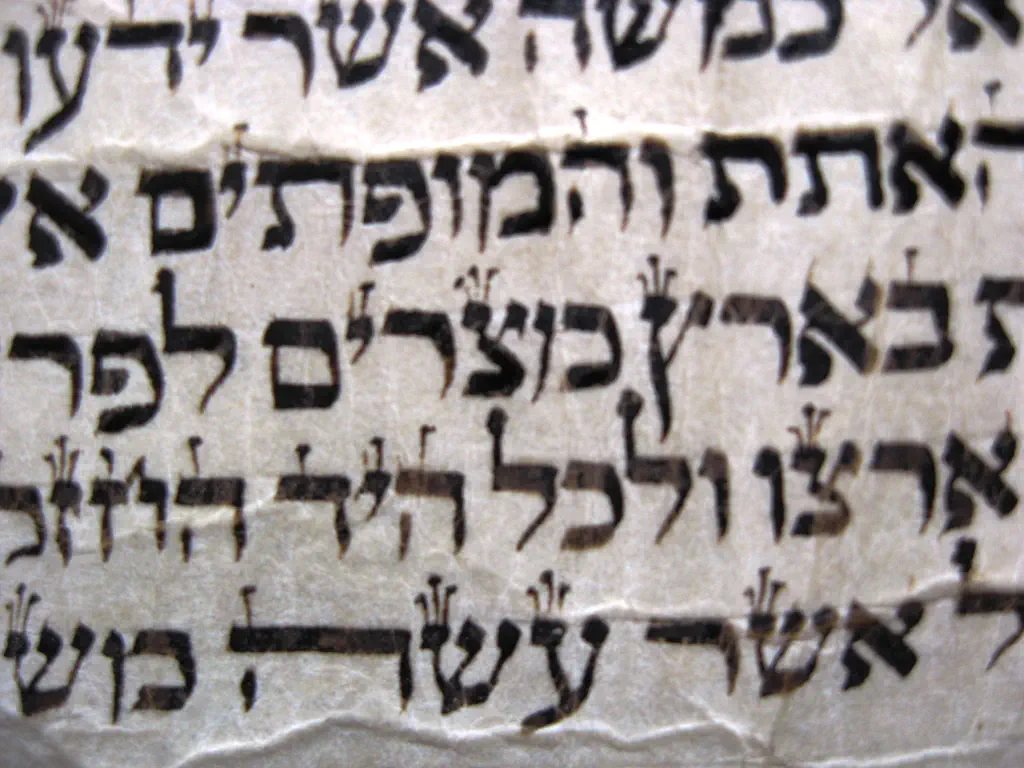 אל כמשה אשר ידעו
האתת והמופתים א
ת בארץ מצרים לפר
ארצו ולכל היד החזק
ל אשר עשה מש